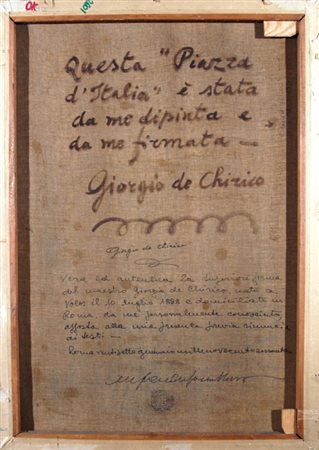 OK
Questa "Piazza
d'Italia" è stata
da me dipinta e
da me firmata —
Giorgio de Chirico
Giorgio de Chirico
Vera ed autentica la superiore firma
del maestro Giorgio de Chirico, nato a
Volos il 10 luglio 1888 e domiciliato in
Roma, da me personalmente conosciuto,
apposta alla mia presenza previa rinuncia
ai testi —
Roma ventisette